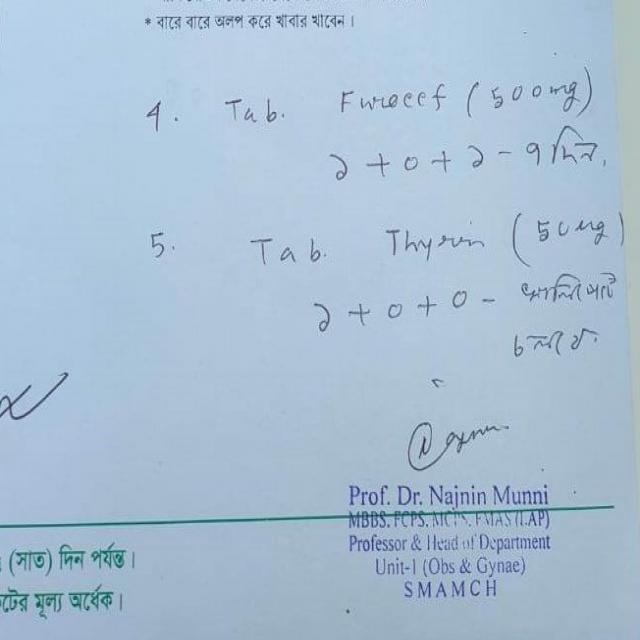 * বারে বারে অল্প করে খাবার খাবেন।
4. Tab. Furocef (500mg)
১ + ০ + ১ - ৭ দিন,
5. Tab. Thyrin (50mg)
১ + ০ + ০ - খালি পেটে
চলবে.
Prof. Dr. Najnin Munni
MBBS, FCPS, MCPS, FMAS (LAP)
Professor & Head of Department
Unit-I (Obs & Gynae)
SMAMCH
(সাত) দিন পর্যন্ত।
মূল্য অর্ধেক।